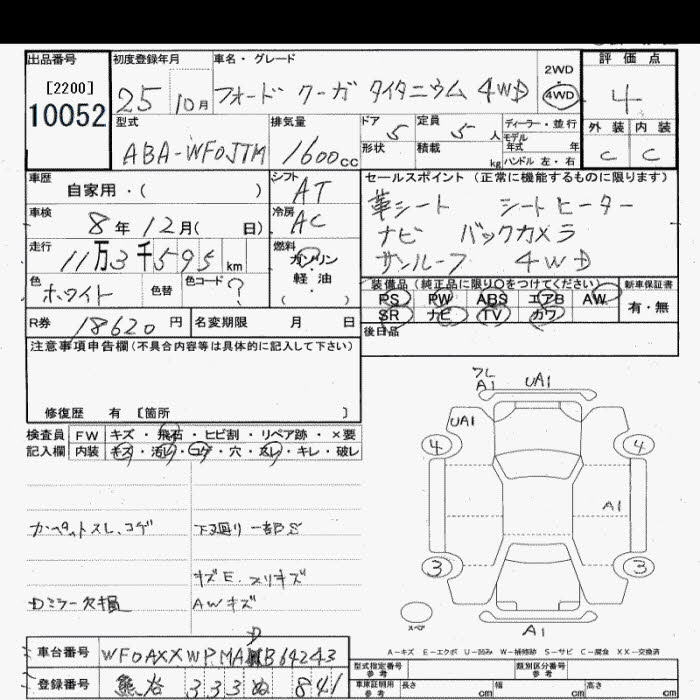 出品番号 初度登録年月 車名・グレード 評価点
[2200]
10052
25 10月 フォード クーガ タイタニウム 4WD 2WD 4WD 4
型式 排気量 ドア 定員 ディーラー・並行 外装 内装
ABA-WF0JTM 1600cc 5 5人 モデル年式 年 C C
形状 積載 kg ハンドル 左・右
車歴 シフト セールスポイント (正常に機能するものに限ります)
自家用・( ) AT 革シート シートヒーター
車検 8年12月( 日) 冷房 AC ナビ バックカメラ
走行 11万3千595km 燃料 ガソリン・軽油 サンルーフ 4WD
色 ホワイト 色替 色コード ? ( )
装備品(純正品に限り○をつけてください) 新車保証書
PS PW ABS エアB AW 有・無
SR ナビ TV カワ
R券 18620円 名変期限 月 日 後日品
注意事項申告欄(不具合内容等は具体的に記入して下さい)
修復歴 有 [箇所 ]
検査員 FW キズ・飛石・ヒビ割・リペア跡・×要
記入欄 内装 キズ・汚レ・コゲ・穴・スレ・キレ・破レ
フレ
A1 UA1
UA1
4 4
A1
3 3
スペア
A1
カーペットスレ、コゲ 下廻り一部S
キズE、スリキズ
Dミラー欠損 AWキズ
A-キズ E-エクボ U-凹み W-補修跡 S-サビ C-腐食 XX-交換済
車台番号 WF0AXXWPMADB64243
登録番号 熊谷 333 ぬ 841
型式指定番号 参考 類別区分番号 参考
車庫証明用 参考 長さ cm 幅 cm 高さ cm